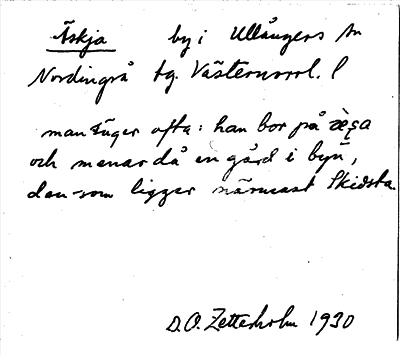 Äskja by i Ullångers sn
Nordingrå tg. Västernorrl. l
man säger ofta: han bor på
och menar då en gård i byn,
den som ligger närmast Skidsta.
D.O. Zetterholm 1930